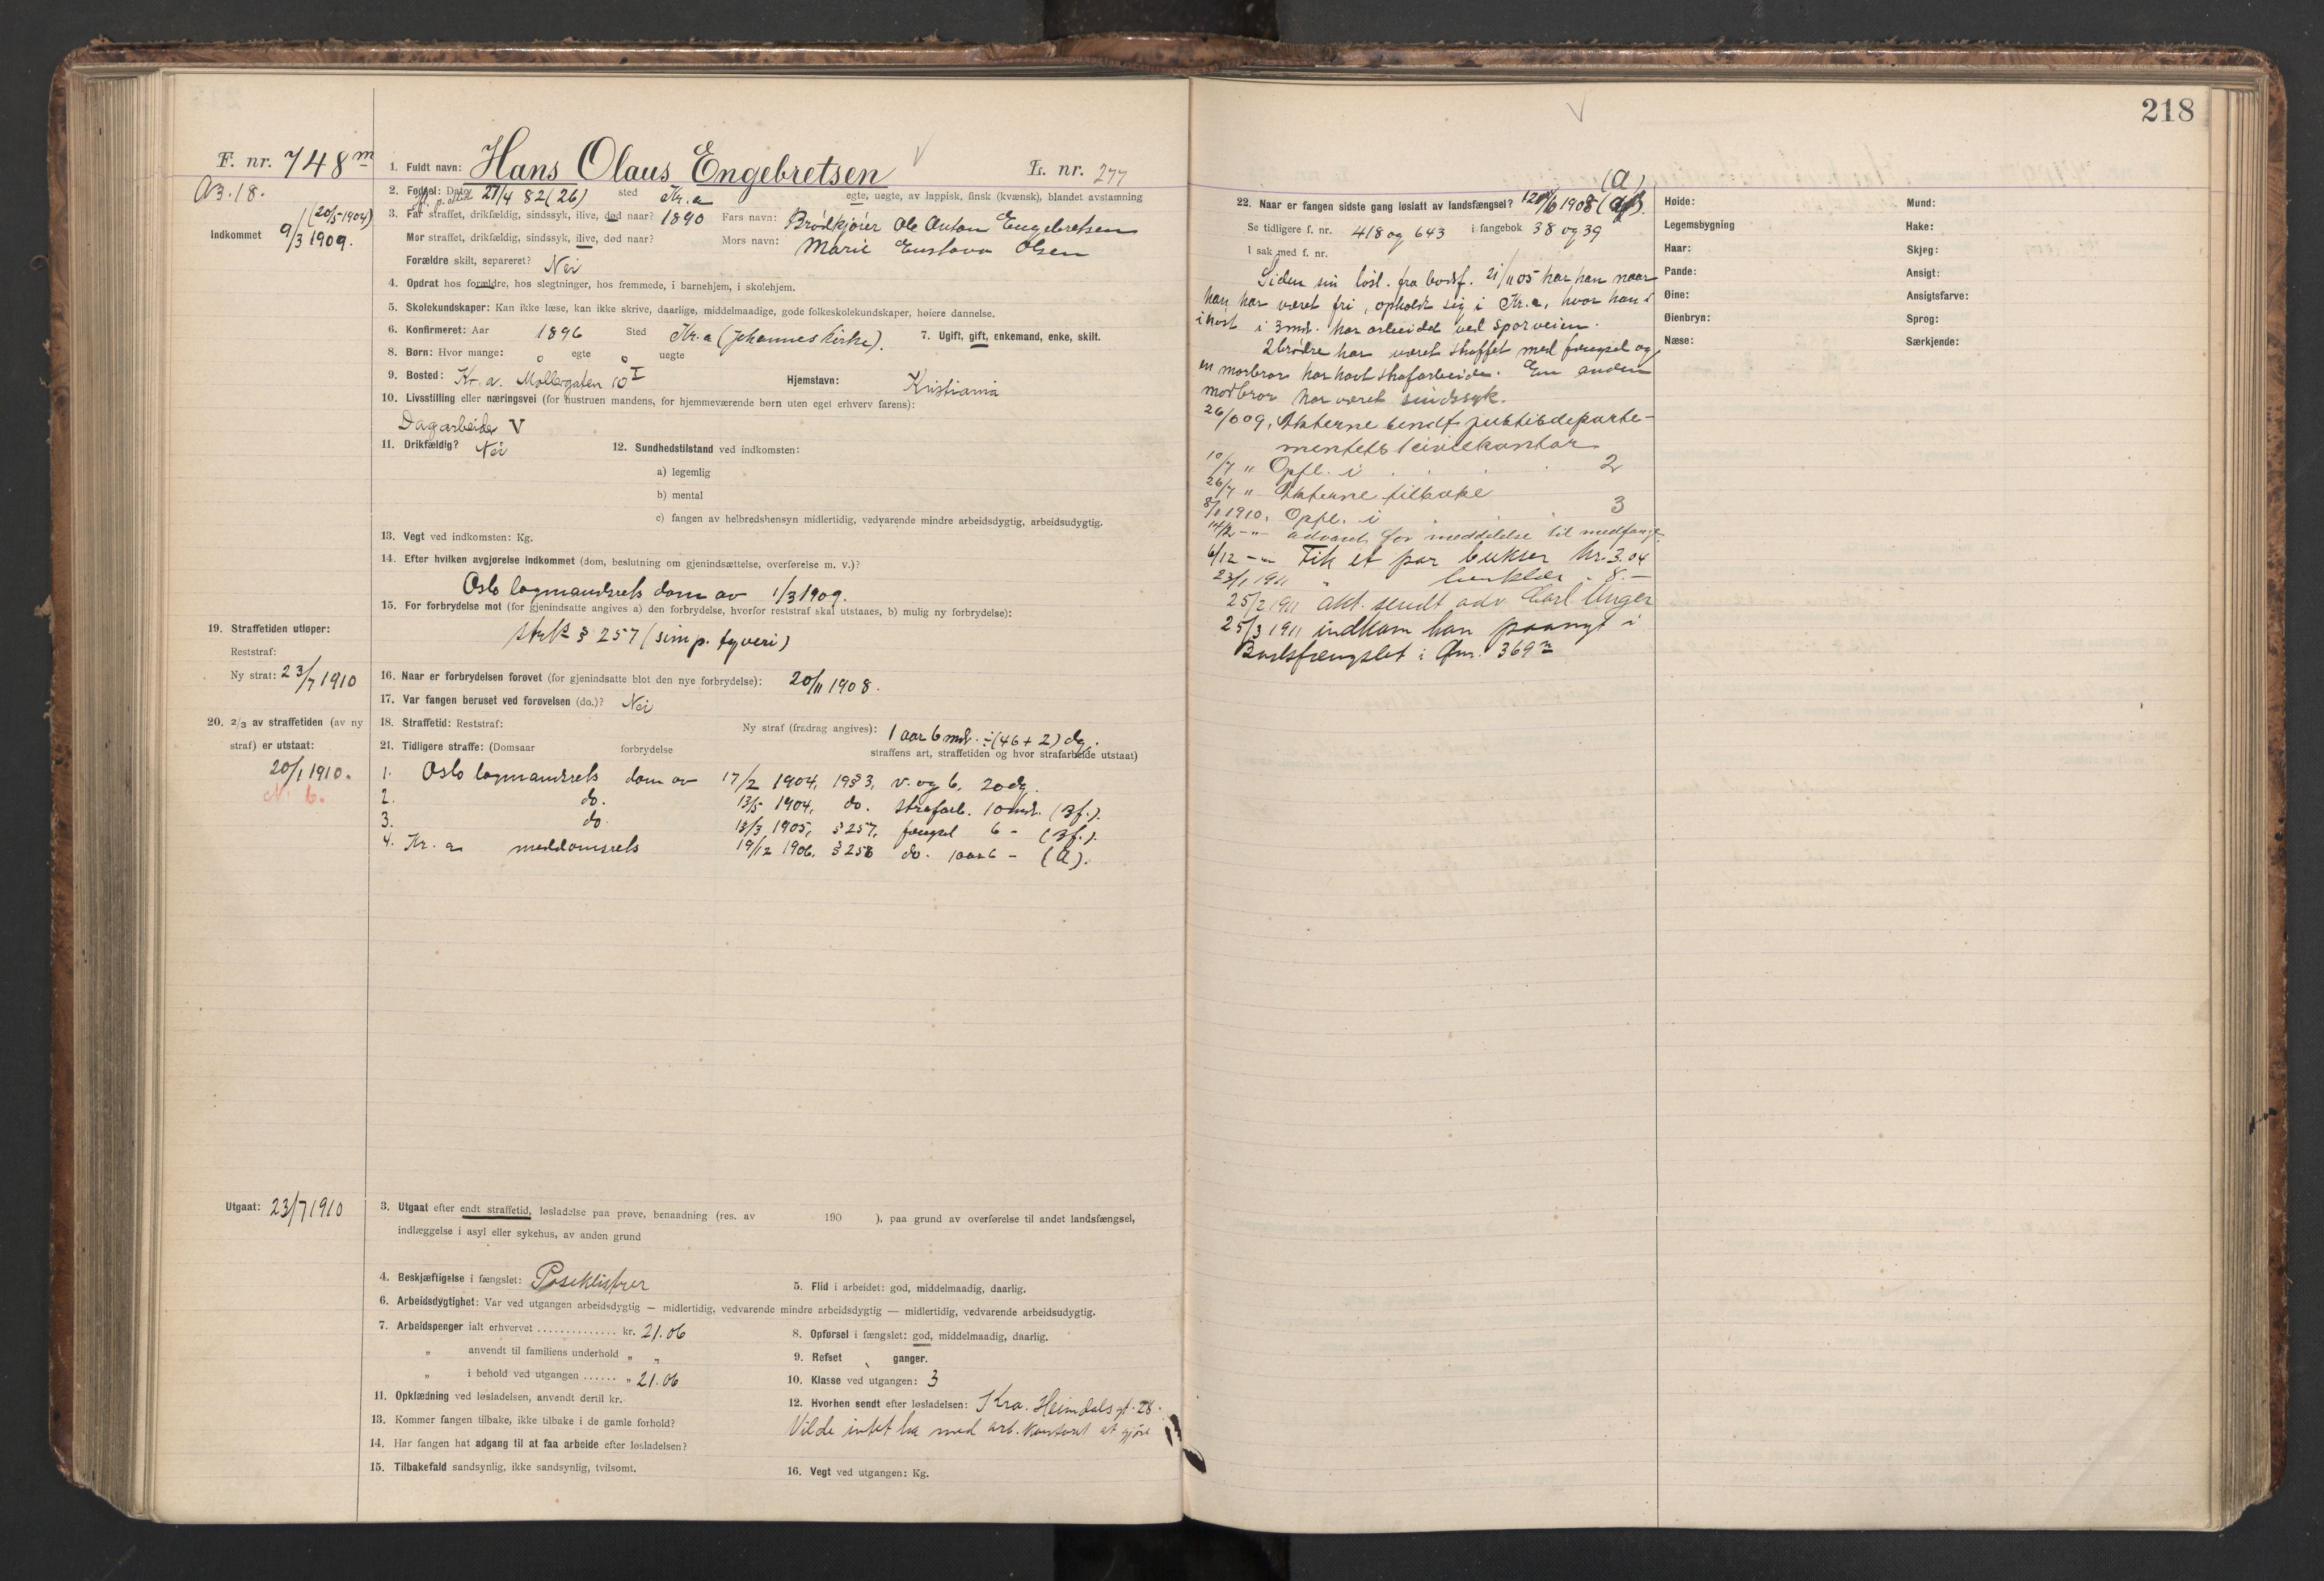 218
F. nr. 748 m
1. Fuldt navn: Hans Olaus Engebretsen
L. nr. 277
A 3.18.
2. Fødsel: Dato 27/4 82 (26) sted Kr.a egte, uegte, av lappisk, finsk (kvænsk), blandet avstamning
(20/5-1904)
Indkommet 9/3 1909.
3. Far straffet, drikfældig, sindssyk, ilive, død naar? 1890 Fars navn: Brødkjører Ole Anton Engebretsen
Mor straffet, drikfældig, sindssyk, ilive, død naar? Mors navn: Marie Gustava Olsen
Forældre skilt, separeret? Nei
4. Opdrat hos forældre, hos slegtninger, hos fremmede, i barnehjem, i skolehjem.
5. Skolekundskaper: Kan ikke læse, kan ikke skrive, daarlige, middelmaadige, gode folkeskolekundskaper, høiere dannelse.
6. Konfirmeret: Aar 1896 Sted Kr.a (Johannes kirke). 7. Ugift, gift, enkemand, enke, skilt.
8. Børn: Hvor mange: 0 egte 0 uegte
9. Bosted: Kr.a. Møllergaten 10 I Hjemstavn: Kristiania
10. Livsstilling eller næringsvei (for hustruen mandens, for hjemmeværende børn uten eget erhverv farens):
Dagarbeider V
11. Drikfældig? Nei 12. Sundhedstilstand ved indkomsten:
a) legemlig
b) mental
c) fangen av helbredshensyn midlertidig, vedvarende mindre arbeidsdygtig, arbeidsudygtig.
13. Vegt ved indkomsten: Kg.
14. Efter hvilken avgjørelse indkommet (dom, beslutning om gjenindsættelse, overførelse m. v.)?
Oslo lagmandsrets dom av 1/3 1909.
15. For forbrydelse mot (for gjenindsatte angives a) den forbrydelse, hvorfor reststraf skal utstaaes, b) mulig ny forbrydelse):
§ 257 (simp. tyveri)
19. Straffetiden utløper:
Reststraf:
Ny straf: 23/7 1910
16. Naar er forbrydelsen forøvet (for gjenindsatte blot den nye forbrydelse): 20/11 1908.
17. Var fangen beruset ved forøvelsen (do.)? Nei
20. 2/3 av straffetiden (av ny
straf) er utstaat:
20/1 1910.
18. Straffetid: Reststraf: Ny straf (fradrag angives): 1 aar 6 md. ÷ (46 + 2) dg.
21. Tidligere straffe: (Domsaar forbrydelse straffens art, straffetiden og hvor strafarbeide utstaat)
1. Oslo lagmandsrets dom av 17/2 1904, 19 § 3, v. og b. 20 dg.
2. do. 13/5 1904, do. strafarb. 10 md. (Bf.).
3. do. 18/3 1905, § 257, fængsel 6 - (Bf.).
4. Kr.a meddomsrets 19/12 1906, § 258 do. 1 aar 6 - (A).
Utgaat: 23/7 1910
3. Utgaat efter endt straffetid, løsladelse paa prøve, benaadning (res. av 190 ), paa grund av overførelse til andet landsfængsel,
indlæggelse i asyl eller sykehus, av anden grund
4. Beskjæftigelse i fængslet: Poseklistrer 5. Flid i arbeidet: god, middelmaadig, daarlig.
6. Arbeidsdygtighet: Var ved utgangen arbeidsdygtig — midlertidig, vedvarende mindre arbeidsdygtig — midlertidig, vedvarende arbeidsudygtig.
7. Arbeidspenger ialt erhvervet .............. kr. 21.06 8. Opførsel i fængslet: god, middelmaadig, daarlig.
" anvendt til familiens underhold " " 9. Refset ganger.
" i behold ved utgangen ...... " 21.06 10. Klasse ved utgangen: 3
11. Opklædning ved løsladelsen, anvendt dertil kr. 12. Hvorhen sendt efter løsladelsen: Kra. Heimdalsgt. 28.
13. Kommer fangen tilbake, ikke tilbake i de gamle forhold? Vilde intet ha med arb. kontoret at gjøre
14. Har fangen hat adgang til at faa arbeide efter løsladelsen?
15. Tilbakefald sandsynlig, ikke sandsynlig, tvilsomt. 16. Vegt ved utgangen: Kg.
(A)
22. Naar er fangen sidste gang løslatt av landsfængsel? 6 1908
Se tidligere f. nr. 418 og 643 i fangebok 38 og 39
I sak med f. nr.
Siden sin løsl. fra bodsf. 21/11 05 har han naar
han har været fri, opholdt sig i Kr.a, hvor han
i høst i 3 md. har arbeidet ved sporveien.
2 brødre har været straffet med fængsel og
en morbror har havt strafarbeide. En anden
morbror har været sindssyk.
26/6 09. Akterne sendt justisdeparte-
mentets 1 civilekontor
10/7 " Opfl. i . . . . 2
26/7 " Akterne tilbake
8/1 1910. Opfl. i . . . 3
14/2 - " - advaret for meddelelse til medfange
6/12 - " - Fik et par bukser kr. 3.04
23/1 1911 " 8.—
25/2 1911 akt. sendt adv. Carl Unger
25/3 1911 indkom han paanyt i
Bodsfængslet i Fnr. 369 n
Høide:
Legemsbygning
Haar:
Pande:
Øine:
Øienbryn:
Næse:
Mund:
Hake:
Skjeg:
Ansigt:
Ansigtsfarve:
Sprog:
Særkjende: